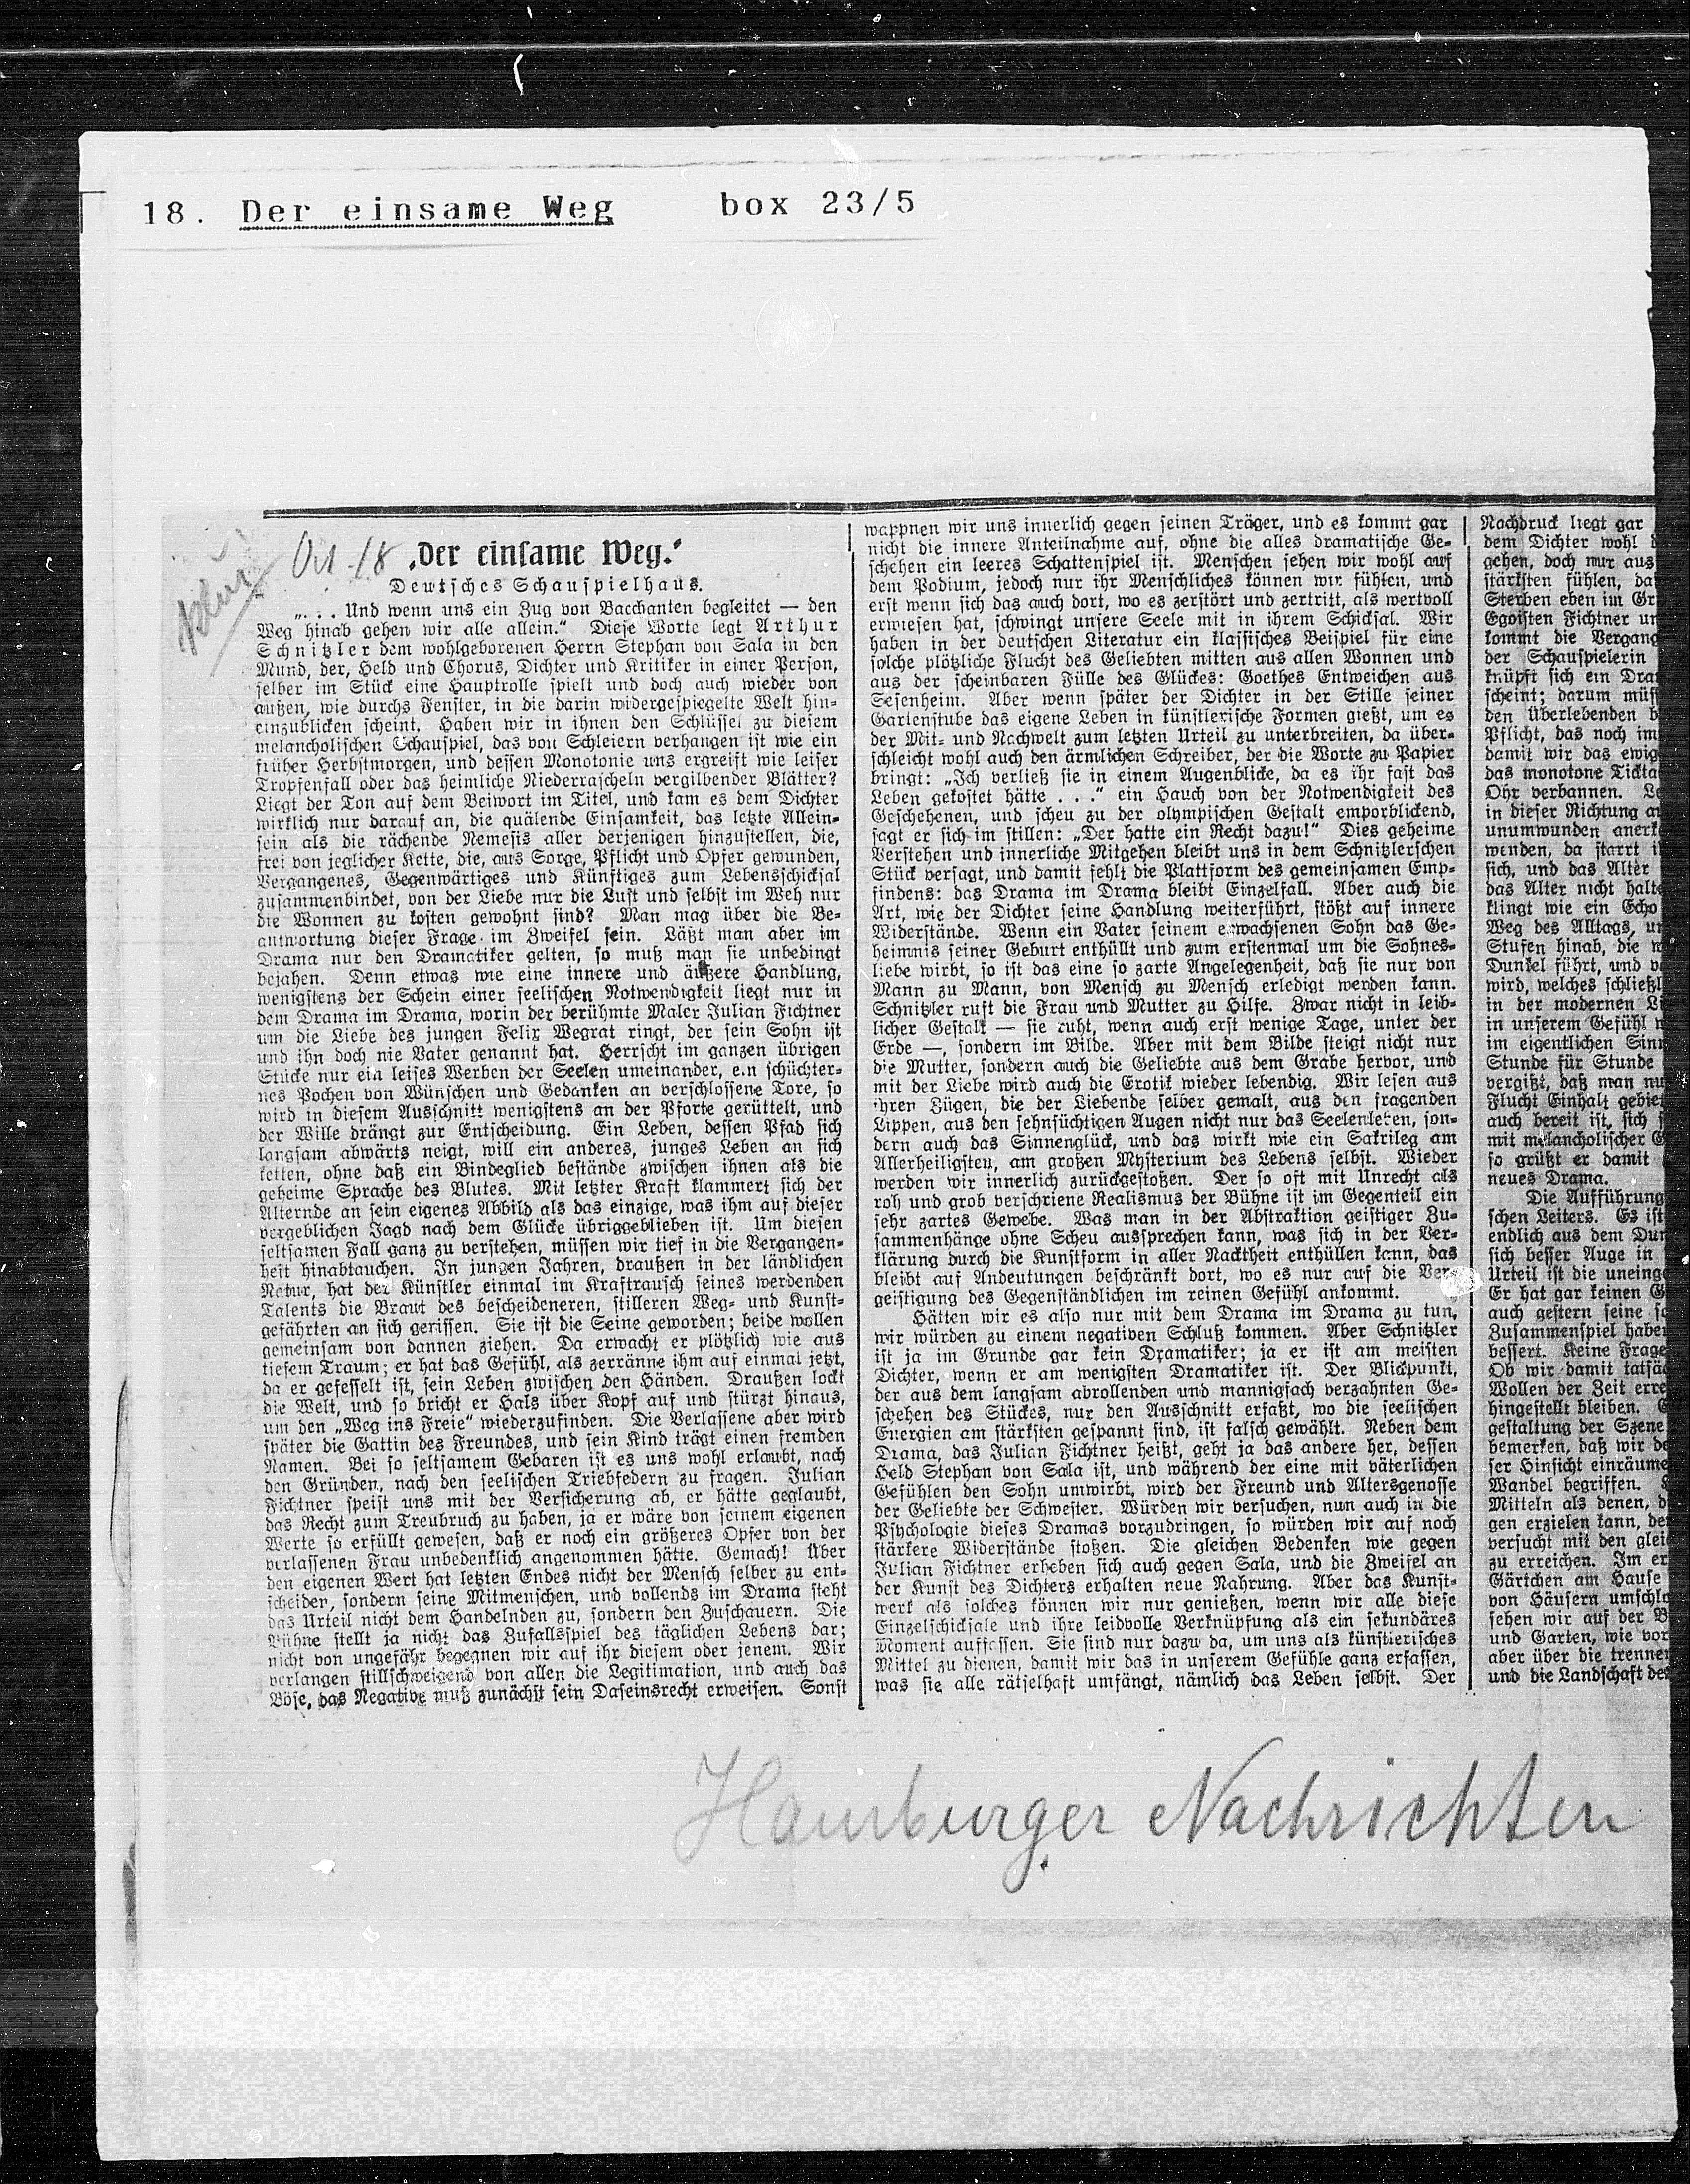 18. Der einsame Weg box 23/5
Oct. 18
„Der einsame Weg."
Deutsches Schauspielhaus.
„. . . Und wenn uns ein Zug von Bacchanten begleitet — den
Weg hinab gehen wir alle allein.“ Diese Worte legt Arthur
Schnitzler dem wohlgeborenen Herrn Stephan von Sala in den
Mund, der, Held und Chorus, Dichter und Kritiker in einer Person,
selber im Stück eine Hauptrolle spielt und doch auch wieder von
außen, wie durchs Fenster, in die darin widergespiegelte Welt hin-
einzublicken scheint. Haben wir in ihnen den Schlüssel zu diesem
melancholischen Schauspiel, das von Schleiern verhangen ist wie ein
früher Herbstmorgen, und dessen Monotonie uns ergreift wie leiser
Tropfenfall oder das heimliche Niederrascheln vergilbender Blätter?
Liegt der Ton auf dem Beiwort im Titel, und kam es dem Dichter
wirklich nur darauf an, die quälende Einsamkeit, das letzte Allein-
sein als die rächende Nemesis aller derjenigen hinzustellen, die,
frei von jeglicher Kette, die, aus Sorge, Pflicht und Opfer gewunden,
Vergangenes, Gegenwärtiges und Künftiges zum Lebensschicksal
zusammenbindet, von der Liebe nur die Lust und selbst im Weh nur
die Wonnen zu kosten gewohnt sind? Man mag über die Be-
antwortung dieser Frage im Zweifel sein. Läßt man aber im
Drama nur den Dramatiker gelten, so muß man sie unbedingt
bejahen. Denn etwas wie eine innere und äußere Handlung,
wenigstens der Schein einer seelischen Notwendigkeit liegt nur in
dem Drama im Drama, worin der berühmte Maler Julian Fichtner
um die Liebe des jungen Felix Wegrat ringt, der sein Sohn ist
und ihn doch nie Vater genannt hat. Herrscht im ganzen übrigen
Stücke nur ein leises Werben der Seelen umeinander, ein schüchter-
nes Pochen von Wünschen und Gedanken an verschlossene Tore, so
wird in diesem Ausschnitt wenigstens an der Pforte gerüttelt, und
der Wille drängt zur Entscheidung. Ein Leben, dessen Pfad sich
langsam abwärts neigt, will ein anderes, junges Leben an sich
ketten, ohne daß ein Bindeglied bestände zwischen ihnen als die
geheime Sprache des Blutes. Mit letzter Kraft klammert sich der
Alternde an sein eigenes Abbild als das einzige, was ihm auf dieser
vergeblichen Jagd nach dem Glücke übriggeblieben ist. Um diesen
seltsamen Fall ganz zu verstehen, müssen wir tief in die Vergangen-
heit hinabtauchen. In jungen Jahren, draußen in der ländlichen
Natur, hat der Künstler einmal im Kraftrausch seines werdenden
Talents die Braut des bescheideneren, stilleren Weg- und Kunst-
gefährten an sich gerissen. Sie ist die Seine geworden; beide wollen
gemeinsam von dannen ziehen. Da erwacht er plötzlich wie aus
tiefem Traum; er hat das Gefühl, als zerränne ihm auf einmal jetzt,
da er gefesselt ist, sein Leben zwischen den Händen. Draußen lockt
die Welt, und so bricht er Hals über Kopf auf und stürzt hinaus,
um den „Weg ins Freie“ wiederzufinden. Die Verlassene aber wird
später die Gattin des Freundes, und sein Kind trägt einen fremden
Namen. Bei so seltsamem Gebaren ist es uns wohl erlaubt, nach
den Gründen, nach den seelischen Triebfedern zu fragen. Julian
Fichtner speist uns mit der Versicherung ab, er hätte geglaubt,
das Recht zum Treubruch zu haben, ja er wäre von seinem eigenen
Werte so erfüllt gewesen, daß er noch ein größeres Opfer von der
verlassenen Frau unbedenklich angenommen hätte. Gemach! Über
den eigenen Wert hat letzten Endes nicht der Mensch selber zu ent-
scheiden, sondern seine Mitmenschen, und vollends im Drama steht
das Urteil nicht dem Handelnden zu, sondern den Zuschauern. Die
Bühne stellt ja nicht das Zufallsspiel des täglichen Lebens dar;
nicht von ungefähr begegnen wir auf ihr diesem oder jenem. Wir
verlangen stillschweigend von allen die Legitimation, und auch das
Böse, das Negative muß zunächst sein Daseinsrecht erweisen. Sonst
wappnen wir uns innerlich gegen seinen Träger, und es kommt gar
nicht die innere Anteilnahme auf, ohne die alles dramatische Ge-
schehen ein leeres Schattenspiel ist. Menschen sehen wir wohl auf
dem Podium, jedoch nur ihr Menschliches können wir fühlen, und
erst wenn sich das auch dort, wo es zerstört und zertritt, als wertvoll
erwiesen hat, schwingt unsere Seele mit in ihrem Schicksal. Wir
haben in der deutschen Literatur ein klassisches Beispiel für eine
solche plötzliche Flucht des Geliebten mitten aus allen Wonnen und
aus der scheinbaren Fülle des Glückes: Goethes Entweichen aus
Sesenheim. Aber wenn später der Dichter in der Stille seiner
Gartenstube das eigene Leben in künstlerische Formen gießt, um es
der Mit- und Nachwelt zum letzten Urteil zu unterbreiten, da über-
schleicht wohl auch den ärmlichen Schreiber, der die Worte zu Papier
bringt: „Ich verließ sie in einem Augenblicke, da es ihr fast das
Leben gekostet hätte . . .“ ein Hauch von der Notwendigkeit des
Geschehenen, und scheu zu der olympischen Gestalt emporblickend,
sagt er sich im stillen: „Der hatte ein Recht dazu!“ Dies geheime
Verstehen und innerliche Mitgehen bleibt uns in dem Schnitzlerschen
Stück versagt, und damit fehlt die Plattform des gemeinsamen Emp-
findens: das Drama im Drama bleibt Einzelfall. Aber auch die
Art, wie der Dichter seine Handlung weiterführt, stößt auf innere
Widerstände. Wenn ein Vater seinem erwachsenen Sohn das Ge-
heimnis seiner Geburt enthüllt und zum erstenmal um die Sohnes-
liebe wirbt, so ist das eine so zarte Angelegenheit, daß sie nur von
Mann zu Mann, von Mensch zu Mensch erledigt werden kann.
Schnitzler ruft die Frau und Mutter zu Hilfe. Zwar nicht in leib-
licher Gestalt — sie ruht, wenn auch erst wenige Tage, unter der
Erde —, sondern im Bilde. Aber mit dem Bilde steigt nicht nur
die Mutter, sondern auch die Geliebte aus dem Grabe hervor, und
mit der Liebe wird auch die Erotik wieder lebendig. Wir lesen aus
ihren Zügen, die der Liebende selber gemalt, aus den fragenden
Lippen, aus den sehnsüchtigen Augen nicht nur das Seelenleben, son-
dern auch das Sinnenglück, und das wirkt wie ein Sakrileg am
Allerheiligsten, am großen Mysterium des Lebens selbst. Wieder
werden wir innerlich zurückgestoßen. Der so oft mit Unrecht als
roh und grob verschriene Realismus der Bühne ist im Gegenteil ein
sehr zartes Gewebe. Was man in der Abstraktion geistiger Zu-
sammenhänge ohne Scheu aussprechen kann, was sich in der Ver-
klärung durch die Kunstform in aller Nacktheit enthüllen kann, das
bleibt auf Andeutungen beschränkt dort, wo es nur auf die Ver-
geistigung des Gegenständlichen im reinen Gefühl ankommt.
Hätten wir es also nur mit dem Drama im Drama zu tun,
wir würden zu einem negativen Schluß kommen. Aber Schnitzler
ist ja im Grunde gar kein Dramatiker; ja er ist am meisten
Dichter, wenn er am wenigsten Dramatiker ist. Der Blickpunkt,
der aus dem langsam abrollenden und mannigfach verzahnten Ge-
schehen des Stückes, nur den Ausschnitt erfaßt, wo die seelischen
Energien am stärksten gespannt sind, ist falsch gewählt. Neben dem
Drama, das Julian Fichtner heißt, geht ja das andere her, dessen
Held Stephan von Sala ist, und während der eine mit väterlichen
Gefühlen den Sohn umwirbt, wird der Freund und Altersgenosse
der Geliebte der Schwester. Würden wir versuchen, nun auch in die
Psychologie dieses Dramas vorzudringen, so würden wir auf noch
stärkere Widerstände stoßen. Die gleichen Bedenken wie gegen
Julian Fichtner erheben sich auch gegen Sala, und die Zweifel an
der Kunst des Dichters erhalten neue Nahrung. Aber das Kunst-
werk als solches können wir nur genießen, wenn wir alle diese
Einzelschicksale und ihre leidvolle Verknüpfung als ein sekundäres
Moment auffassen. Sie sind nur dazu da, um uns als künstlerisches
Mittel zu dienen, damit wir das in unserem Gefühle ganz erfassen,
was sie alle rätselhaft umfängt, nämlich das Leben selbst. Der
Nachdruck liegt gar
dem Dichter wohl
gehen, doch nur aus
stärksten fühlen, da
Sterben eben im Gr
Egoisten Fichtner un
kommt die Vergang
der Schauspielerin
knüpft sich ein Dra
scheint; darum müs
den Überlebenden b
Pflicht, das noch im
damit wir das ewig
das monotone Tickta
Ohr verbannen. Le
in dieser Richtung an
unumwunden anerk
wenden, da starrt i
sich, und das Alter
das Alter nicht halt
klingt wie ein Echo
Weg des Alltags, un
Stufen hinab, die
Dunkel führt, und
wird, welches schließl
in der modernen Li
in unserem Gefühl
im eigentlichen Sinn
Stunde für Stunde
vergißt, daß man nu
Flucht Einhalt gebie
auch bereit ist, sich
mit melancholischer
so grüßt er damit
neues Drama.
Die Aufführung
schen Leiters. Es ist
endlich aus dem Dun
sich besser Auge in
Urteil ist die uneing
Er hat gar keinen
auch gestern seine
Zusammenspiel habe
bessert. Keine Frage
Ob wir damit tatsäc
Wollen der Zeit erre
hingestellt bleiben.
gestaltung der Szene
bemerken, daß wir de
ser Hinsicht einräume
Wandel begriffen.
Mitteln als denen, d
gen erzielen kann, de
versucht mit den glei
zu erreichen. Im er
Gärtchen am Hause
von Häusern umschlo
sehen wir auf der B
und Garten, wie vor
aber über die trennen
und die Landschaft des
Hamburger Nachrichten